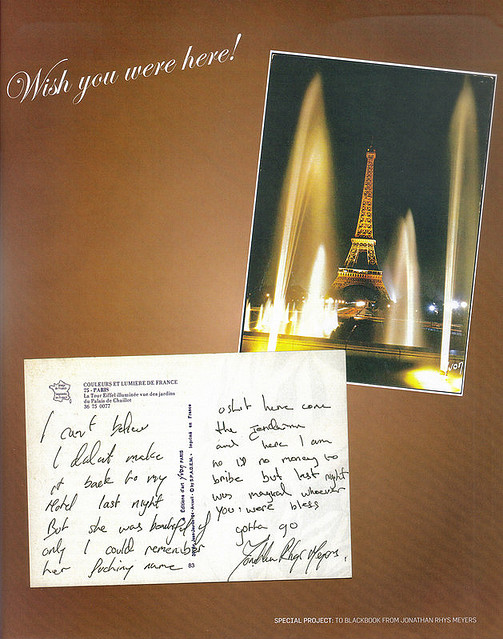 Wish you were here!
yvon
COULEURS ET LUMIERE DE FRANCE
75 - PARIS
La Tour Eiffel illuminée vue des jardins
du Palais de Chaillot
36 75 0077
I can't believe
I did not make
it back to my
Hotel last night
But she was beautiful if
only I could remember
her name
Editions d'art YVON PARIS
Imprimé en France
83
o shit here come
the
and here I am
no no money to
bribe but last night
was magical whoever
you were bless
gotta go
Jonathan Rhys Meyers.
SPECIAL PROJECT: TO BLACKBOOK FROM JONATHAN RHYS MEYERS